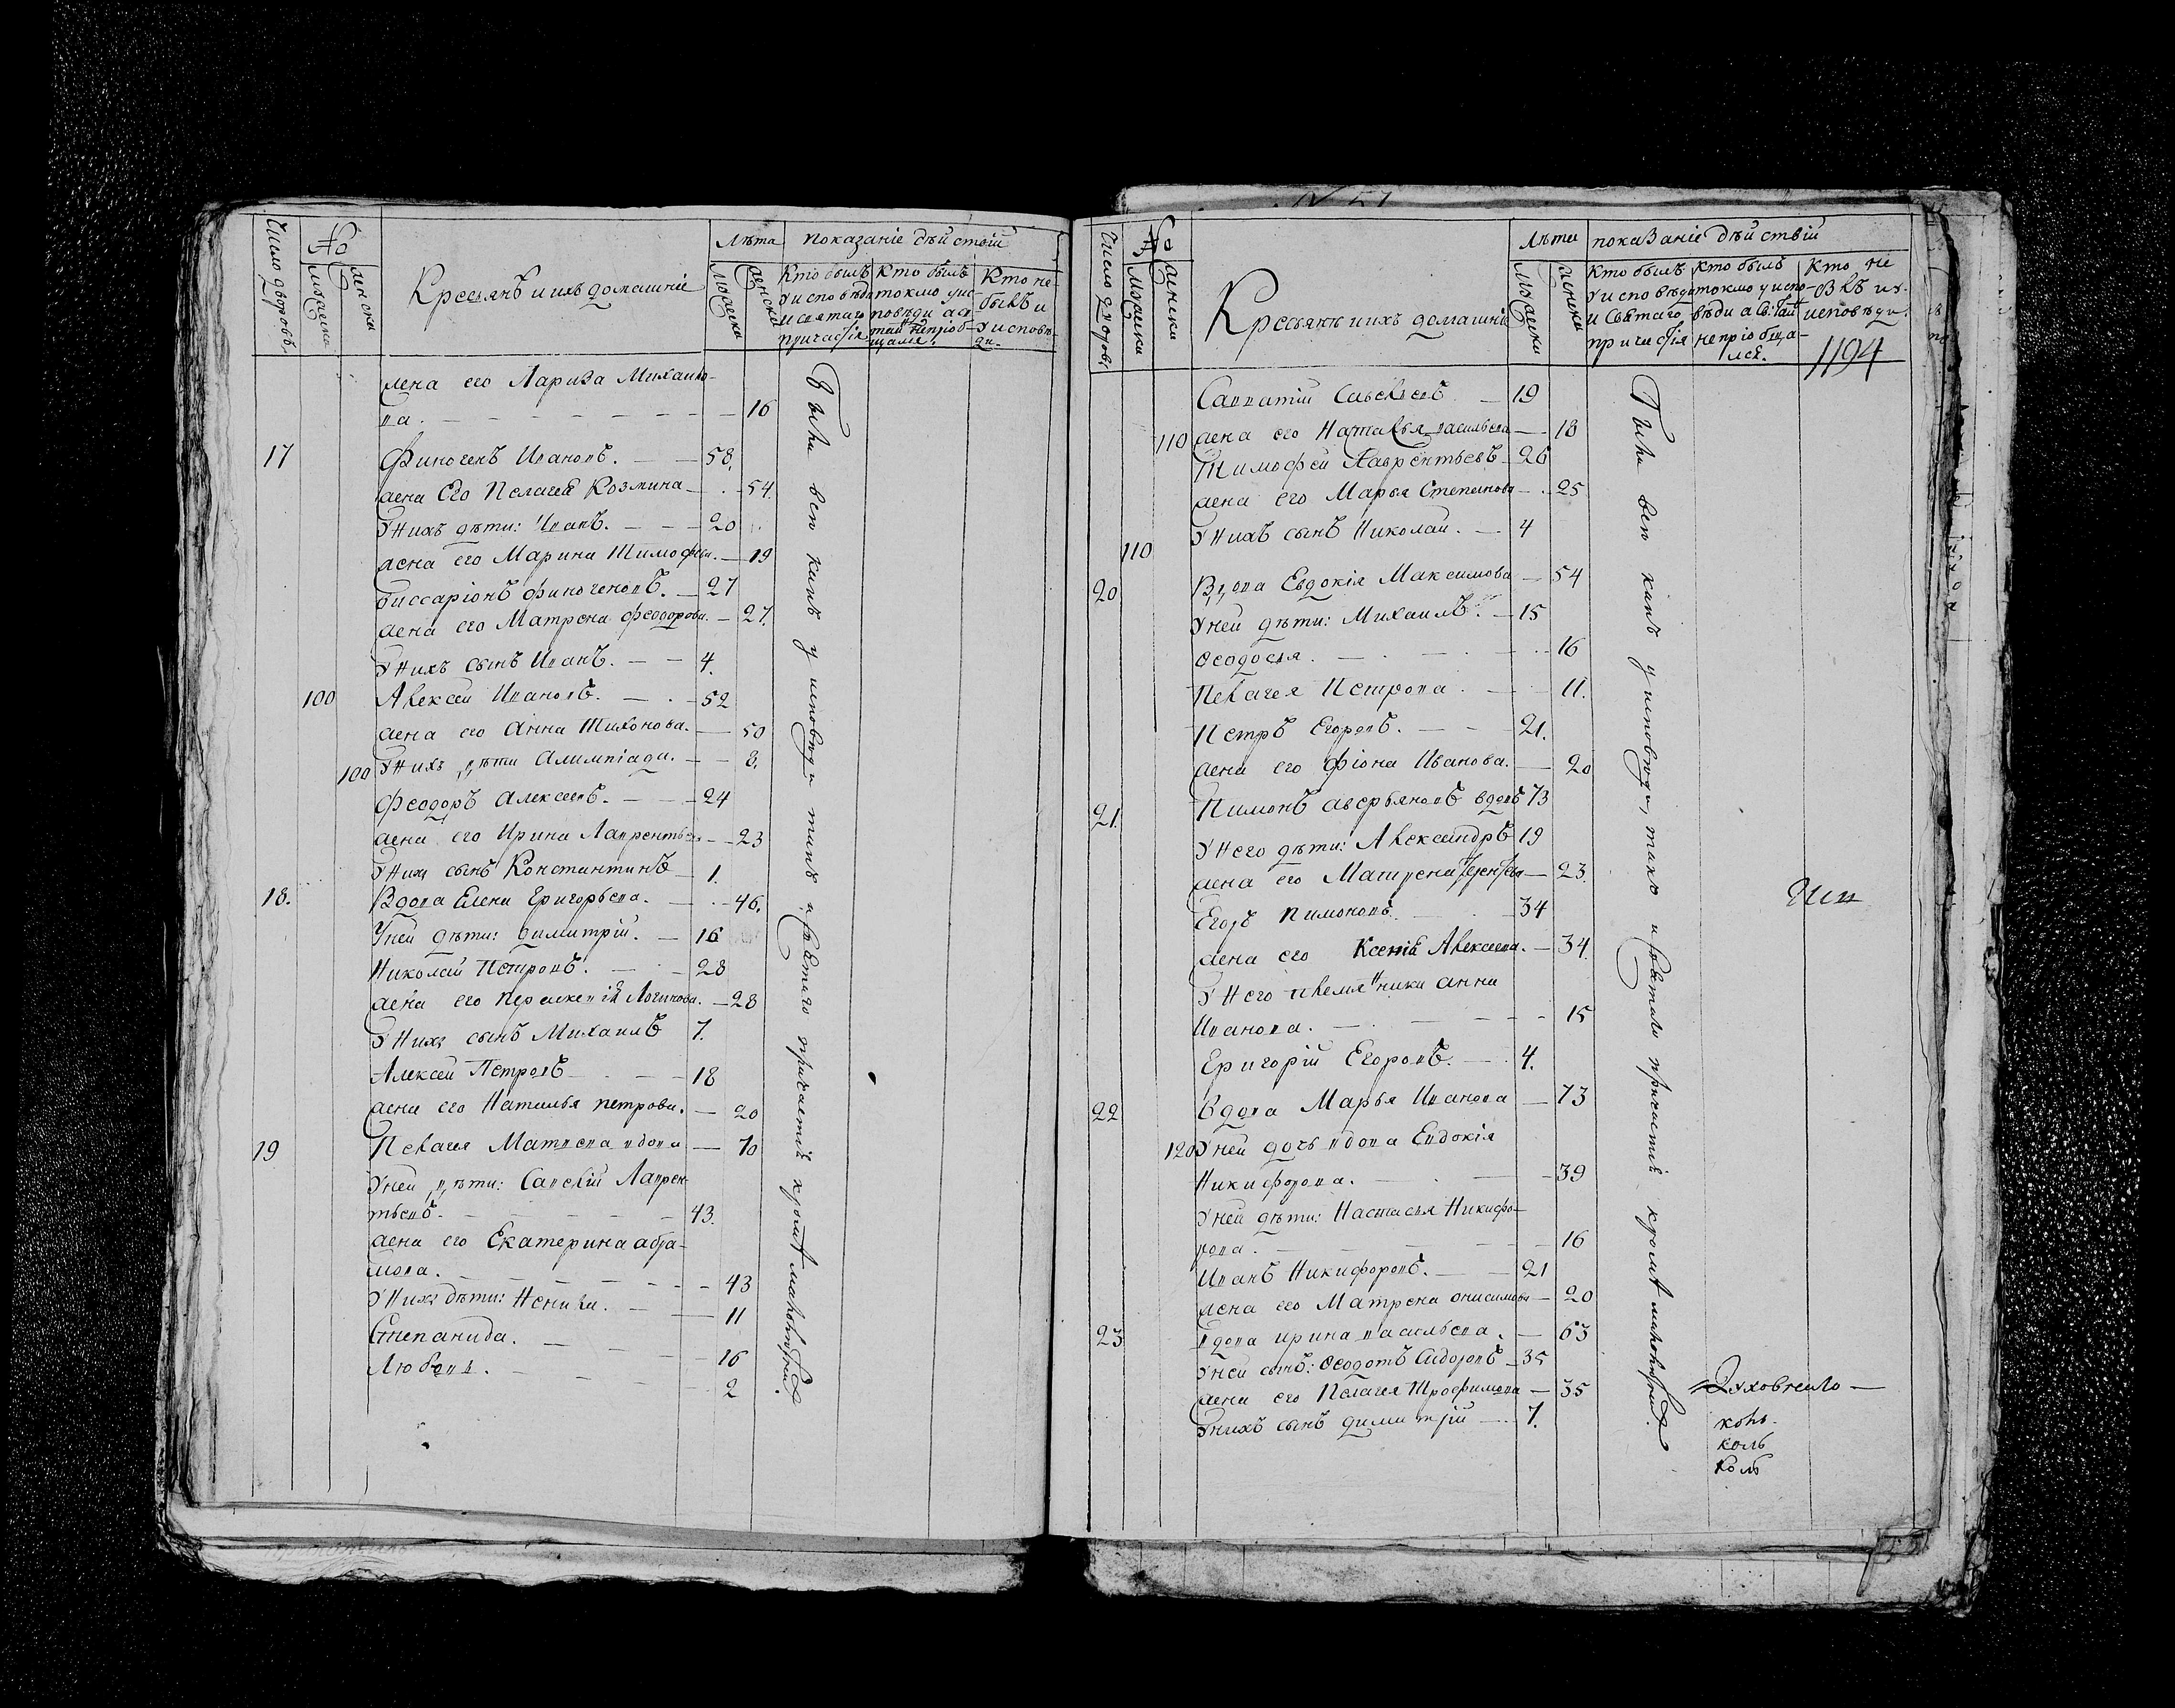 Число дворовъ
№
мужска
женска
Крестьянѣ и ихъ домашніе
Лѣта
мужска
женска
показаніе дѣйствій
Кто былъ у исповѣди и святаго причастія
Кто былъ токмо у исповѣди а св. таинъ не пріобщался.
Кто не былъ и у исповѣди.
жена его Лариѳа Михаило-
ва. 16
17 Финогенъ Ивановъ. 58.
жена его Пелагея Козмина 54.
У нихъ дѣти: Иванъ. 20
жена его Марина Тимофѣева. 19
Виссаріонъ Финогеновъ. 27
жена его Матрена Феодорова. 27.
У нихъ сынъ Иванъ. 4.
100 Алексей Ивановъ. 52
жена его Анна Тихонова. 50
100 У нихъ дѣти Алимпіада. 8.
Феодоръ Алексеевъ. 24
жена его Ирина Лаврентьева 23
У нихъ сынъ Константинъ 1.
18. Вдова Елена Григорьева. 46.
У ней дѣти: Димитрій. 16
Николай Петровъ. 28
жена его Параскевія Логинова. 28
У нихъ сынъ Михаилъ 7.
Алексей Петровъ 18
жена его Наталья Петрова. 20
19 Пелагея Матвеева вдова 70
У ней дѣти: Савелій Лаврен-
тьевъ. 43.
жена его Екатерина Абра-
мова. 43
У нихъ дѣти: Ненила. 11
Степанида. 16
Любовь. 2
всѣ какъ у исповѣди такъ и святаго причастія кромѣ малолѣтныя.
Число дворовъ
№
мужска
женска
Крестьянѣ и ихъ домашніе
Лѣта
мужска
женска
показаніе дѣйствій
Кто былъ у исповѣди и святаго причастія
Кто былъ токмо у исповѣди а св. таинъ не пріобщался.
Кто не былъ и у исповѣди.
1194
Савватій Савельевъ 19
110 жена его Наталья Васильева 18
Тимофей Лаврентьевъ 26
жена его Марья Степанова 25
110 У нихъ сынъ Николай. 4
20 Вдова Евдокія Максимова 54
У ней дѣти: Михаилъ. 15
Ѳеодосья. 16
Пелагея Петрова. 11.
Петръ Егоровъ. 21.
жена его Фіона Иванова. 20
21. Пимонъ Аверьяновъ вдовъ 73
У него дѣти: Александръ 19
жена его Матрена Терентьева 23.
Егоръ Пимоновъ. 34
жена его Ксенія Алексеева. 34.
У него племянники Анна
Иванова. 15
Григорій Егоровъ. 4.
22 Вдова Марья Иванова 73
120 У ней дочь вдова Евдокія
Никифорова. 39
У ней дѣти: Настасья Никифо-
рова. 16
Иванъ Никифоровъ. 21
жена его Матрена Онисимова 20
23 Вдова Ирина Васильева. 63
У ней сынъ: Ѳеодотъ Сидоровъ 35
жена его Пелагея Трофимова 35
У нихъ сынъ Димитрій 7.
всѣ какъ у исповѣди, такъ и святаго причастія кромѣ малолѣтныя
Духовнаго
коль
коль